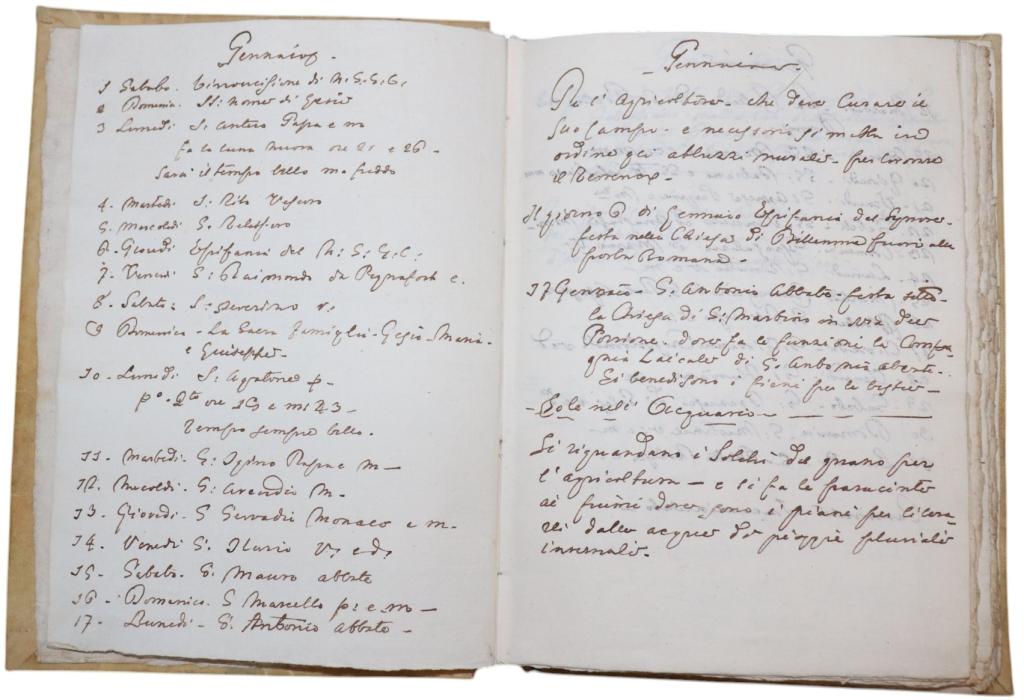 Gennaio
1 Sabato. Circoncisione di N. S. G. C.
2 Domenica. SS: nome di Gesù
3 Lunedi S: Antero Papa e m
fa la luna nuova ore 21 e 26 -
Sarà il tempo bello ma freddo
4. Martedi S: Tito Vescovo
5. Mercoldi S. Telesforo
6. Giovedi Epifania del N: S. G. C.
7. Venerdi S: Raimondo da Pegnafort c.
8. Sabato: S: Severino v:
9 Domenica - La Sacra famiglia - Gesù - Maria -
e Guiseppe -
10. Lunedi S: Agatone p -
p° Qto ore 19 e mi 43 -
tempo sempre bello.
11. Martedi. S: Igino Papa e m -
12. Mercoldi. S: Arcadio m -
13. Giovedi. S Servadio Monaco e m -
14. Venerdi S. Ilario V. e d.
15. Sabato. S. Mauro abbate
16 - Domenica. S Marcello p: e m -
17. Lunedi - S. Antonio abbate -
- Gennaio -
Per l' Agricoltore - che deve Curare il
Suo Campo - e necessario si metta in
ordine gli abbozzi - per lavorare
il Terreno -
Il giorno 6 di Gennaio Epifania del Signore -
festa nella Chiesa di fuori alla
porta Romana -
17 Gennaio - S. Antonio Abbate - festa
la Chiesa di S: Martino in via del
Porrione - dove fa le funzioni la Compa
gnia Laicale di S. Antonio abate -
Si benediscono i fieni per le bestie -
- Sole nell' Acquario -
Si riguardano i Solchi del grano per
l' agricoltura - e si fa le
ai fiumi dove sono i piani per
dalle acque di pioggie pluviali
invernali -